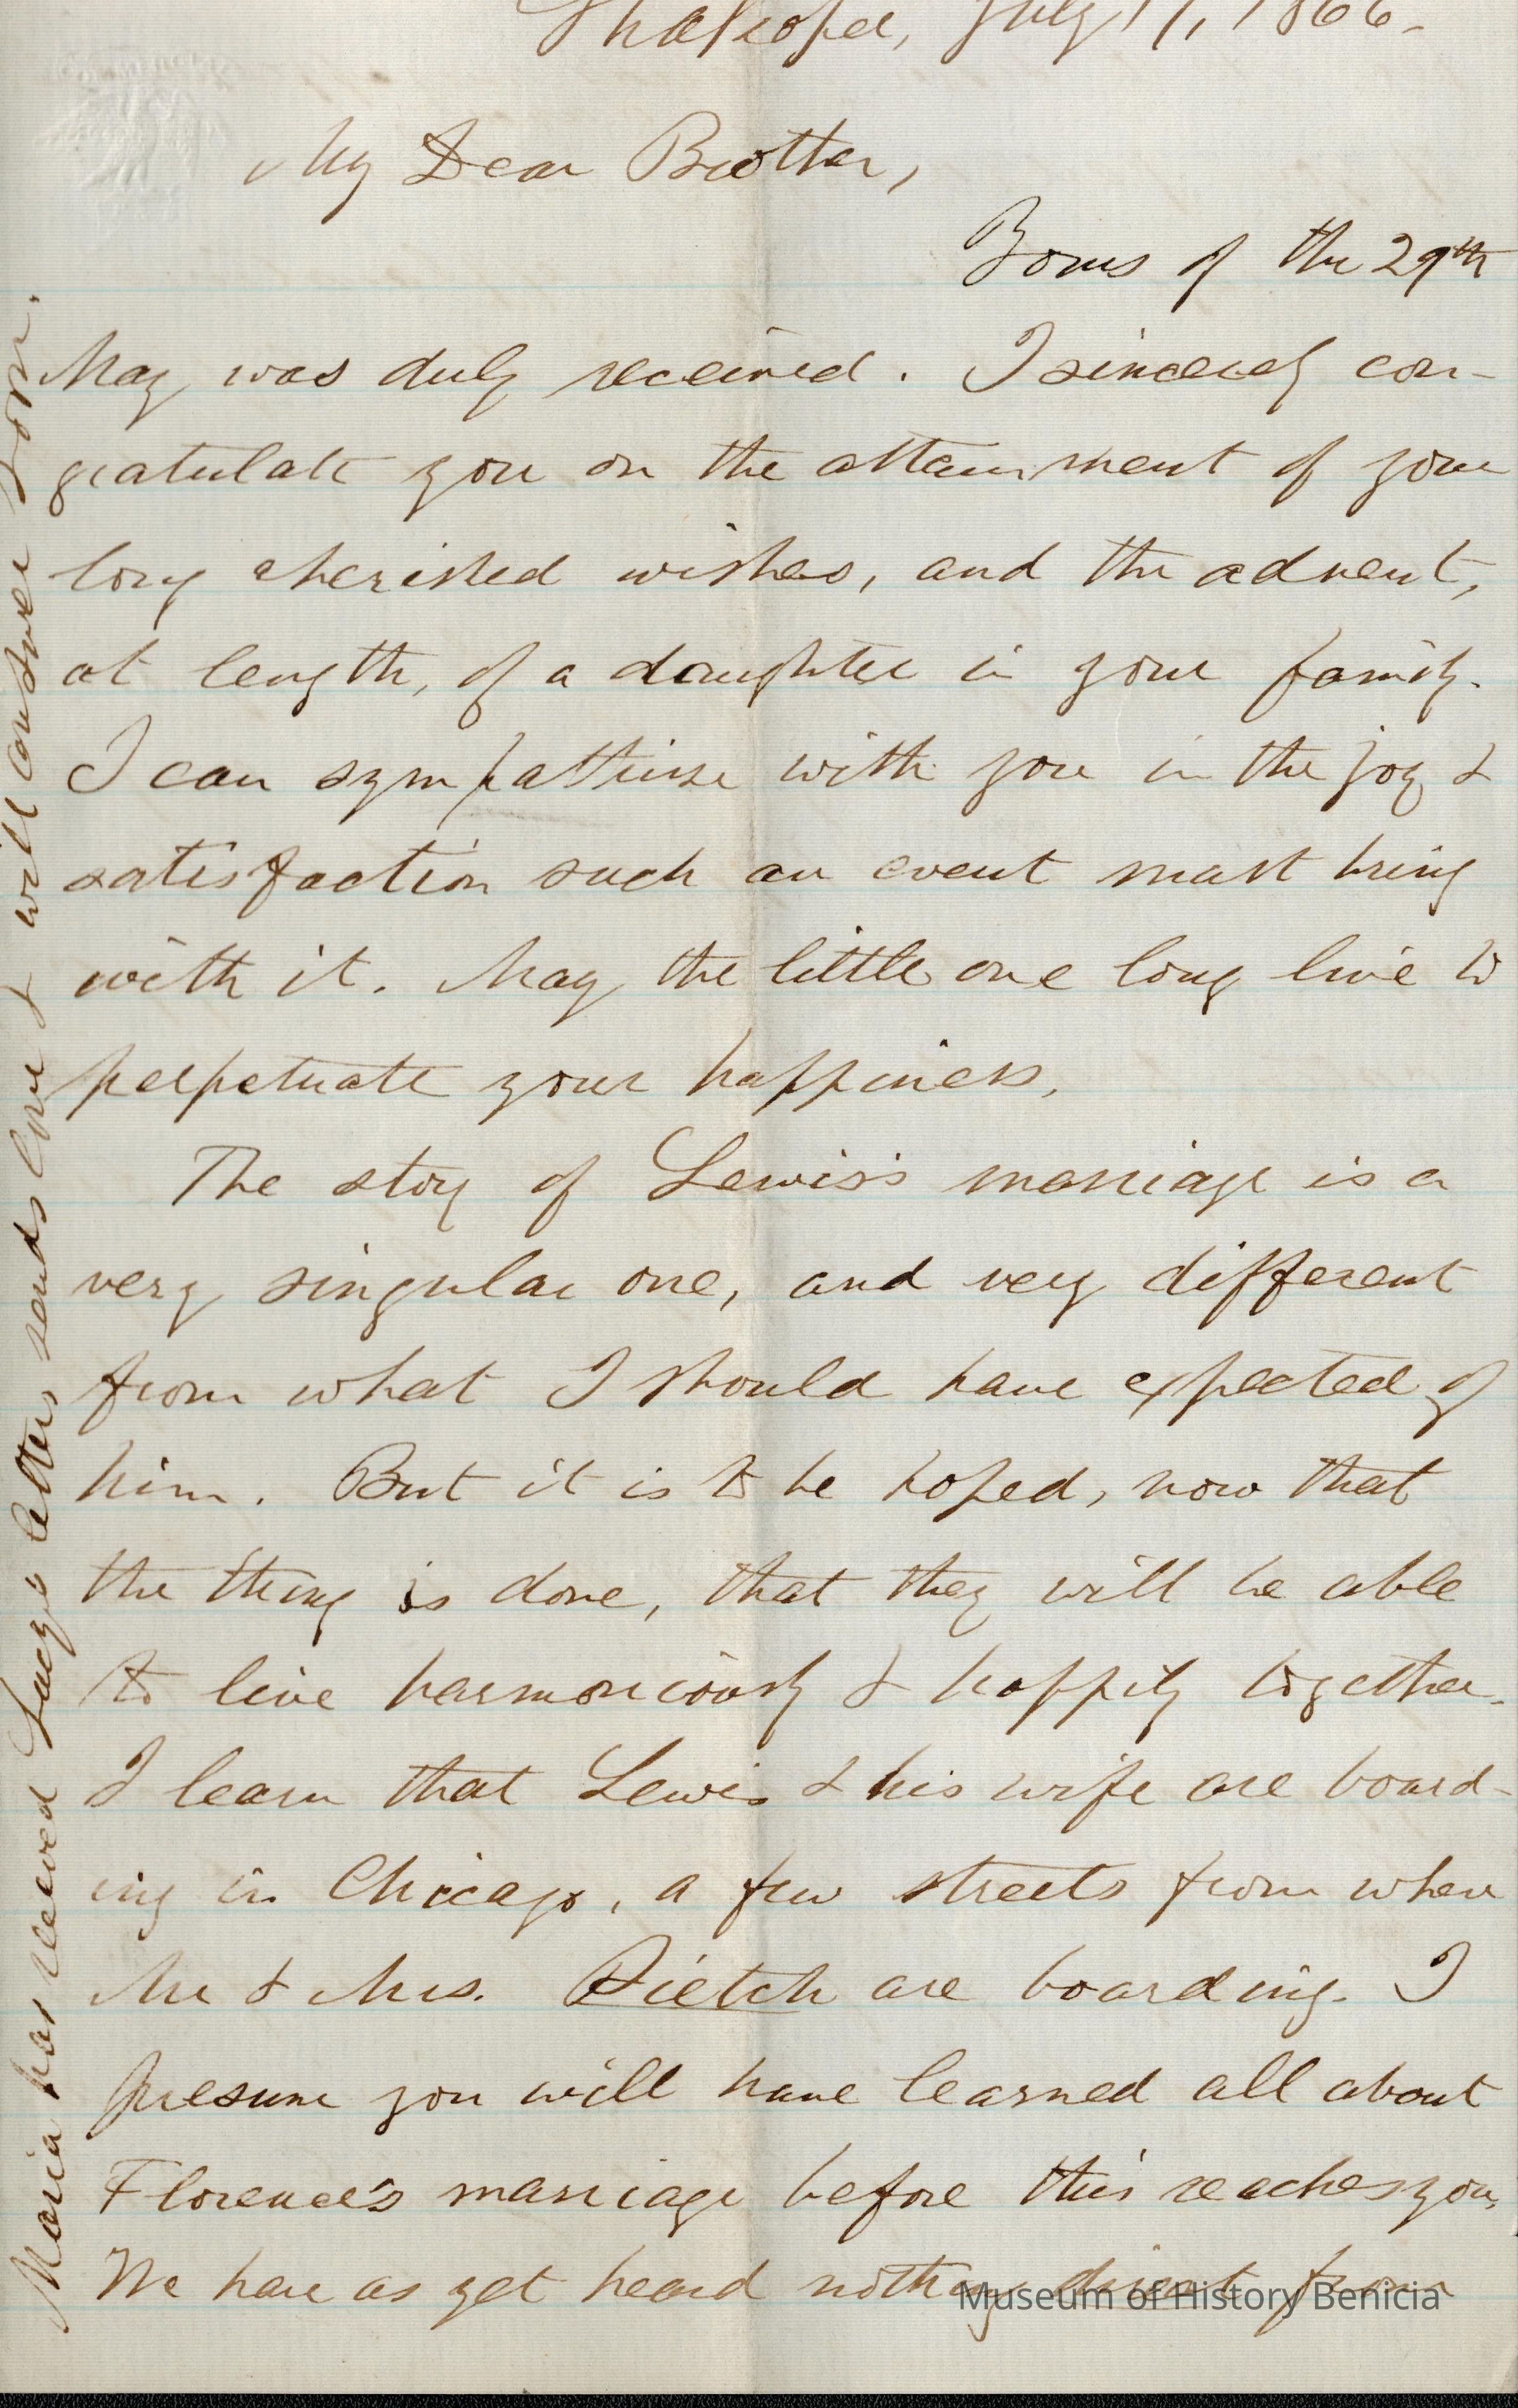 Shakopee, July 17, 1866.
My Dear Brother,
Yours of the 29th
May was duly received. I sincerely con-
gratulate you on the attainment of your
long cherished wishes, and the advent,
at length, of a daughter in your family.
I can sympathise with you in the joy &
satisfaction such an event must bring
with it. May the little one long live to
perpetuate your happiness.
The story of Lewis's marriage is a
very singular one, and very different
from what I should have expected of
him. But it is to be hoped, now that
the thing is done, that they will be able
to live harmoniously & happily together.
I learn that Lewis & his wife are board-
ing in Chicago, a few streets from where
Mr & Mrs. Dietch are boarding. I
presume you will have learned all about
Florence's marriage before this reaches you.
We have as yet heard nothing direct from
Maria has received Lucy's letter, sends love & will answer soon.
Museum of History Benicia